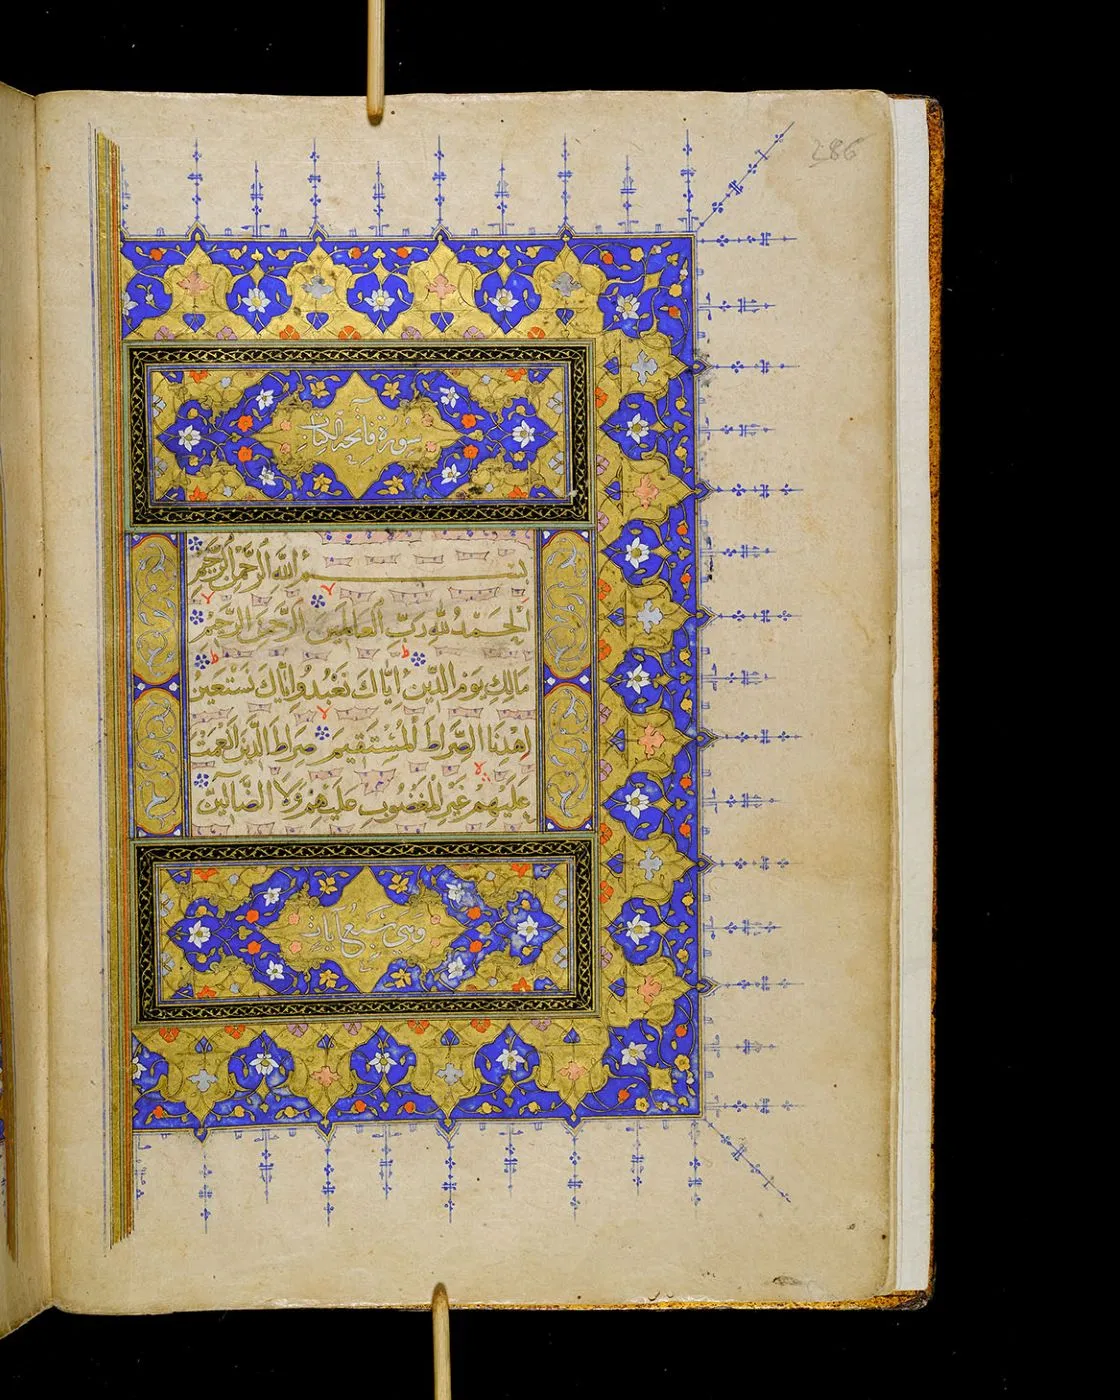 286
سورة فاتحة الكتاب
بسم الله الرحمن الرحيم
الحمد لله رب العالمين الرحمن الرحيم
مالك يوم الدين اياك نعبد واياك نستعين
اهدنا الصراط المستقيم صراط الذين انعمت
عليهم غير المغضوب عليهم ولا الضالين
وهي سبع آيات